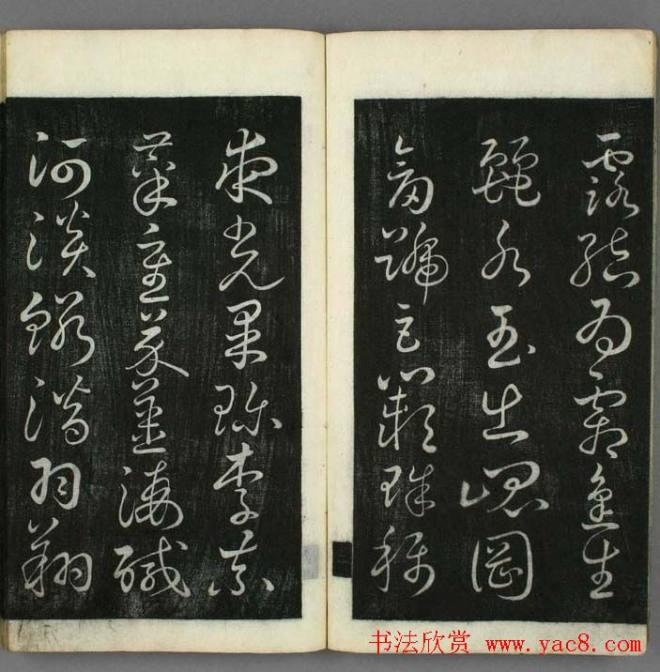 露結為霜金生
麗水玉出崐岡
劍號巨闕珠稱
夜光果珍李柰
菜重芥薑海鹹
河淡鱗潛羽翔
书法欣赏 www.yac8.com